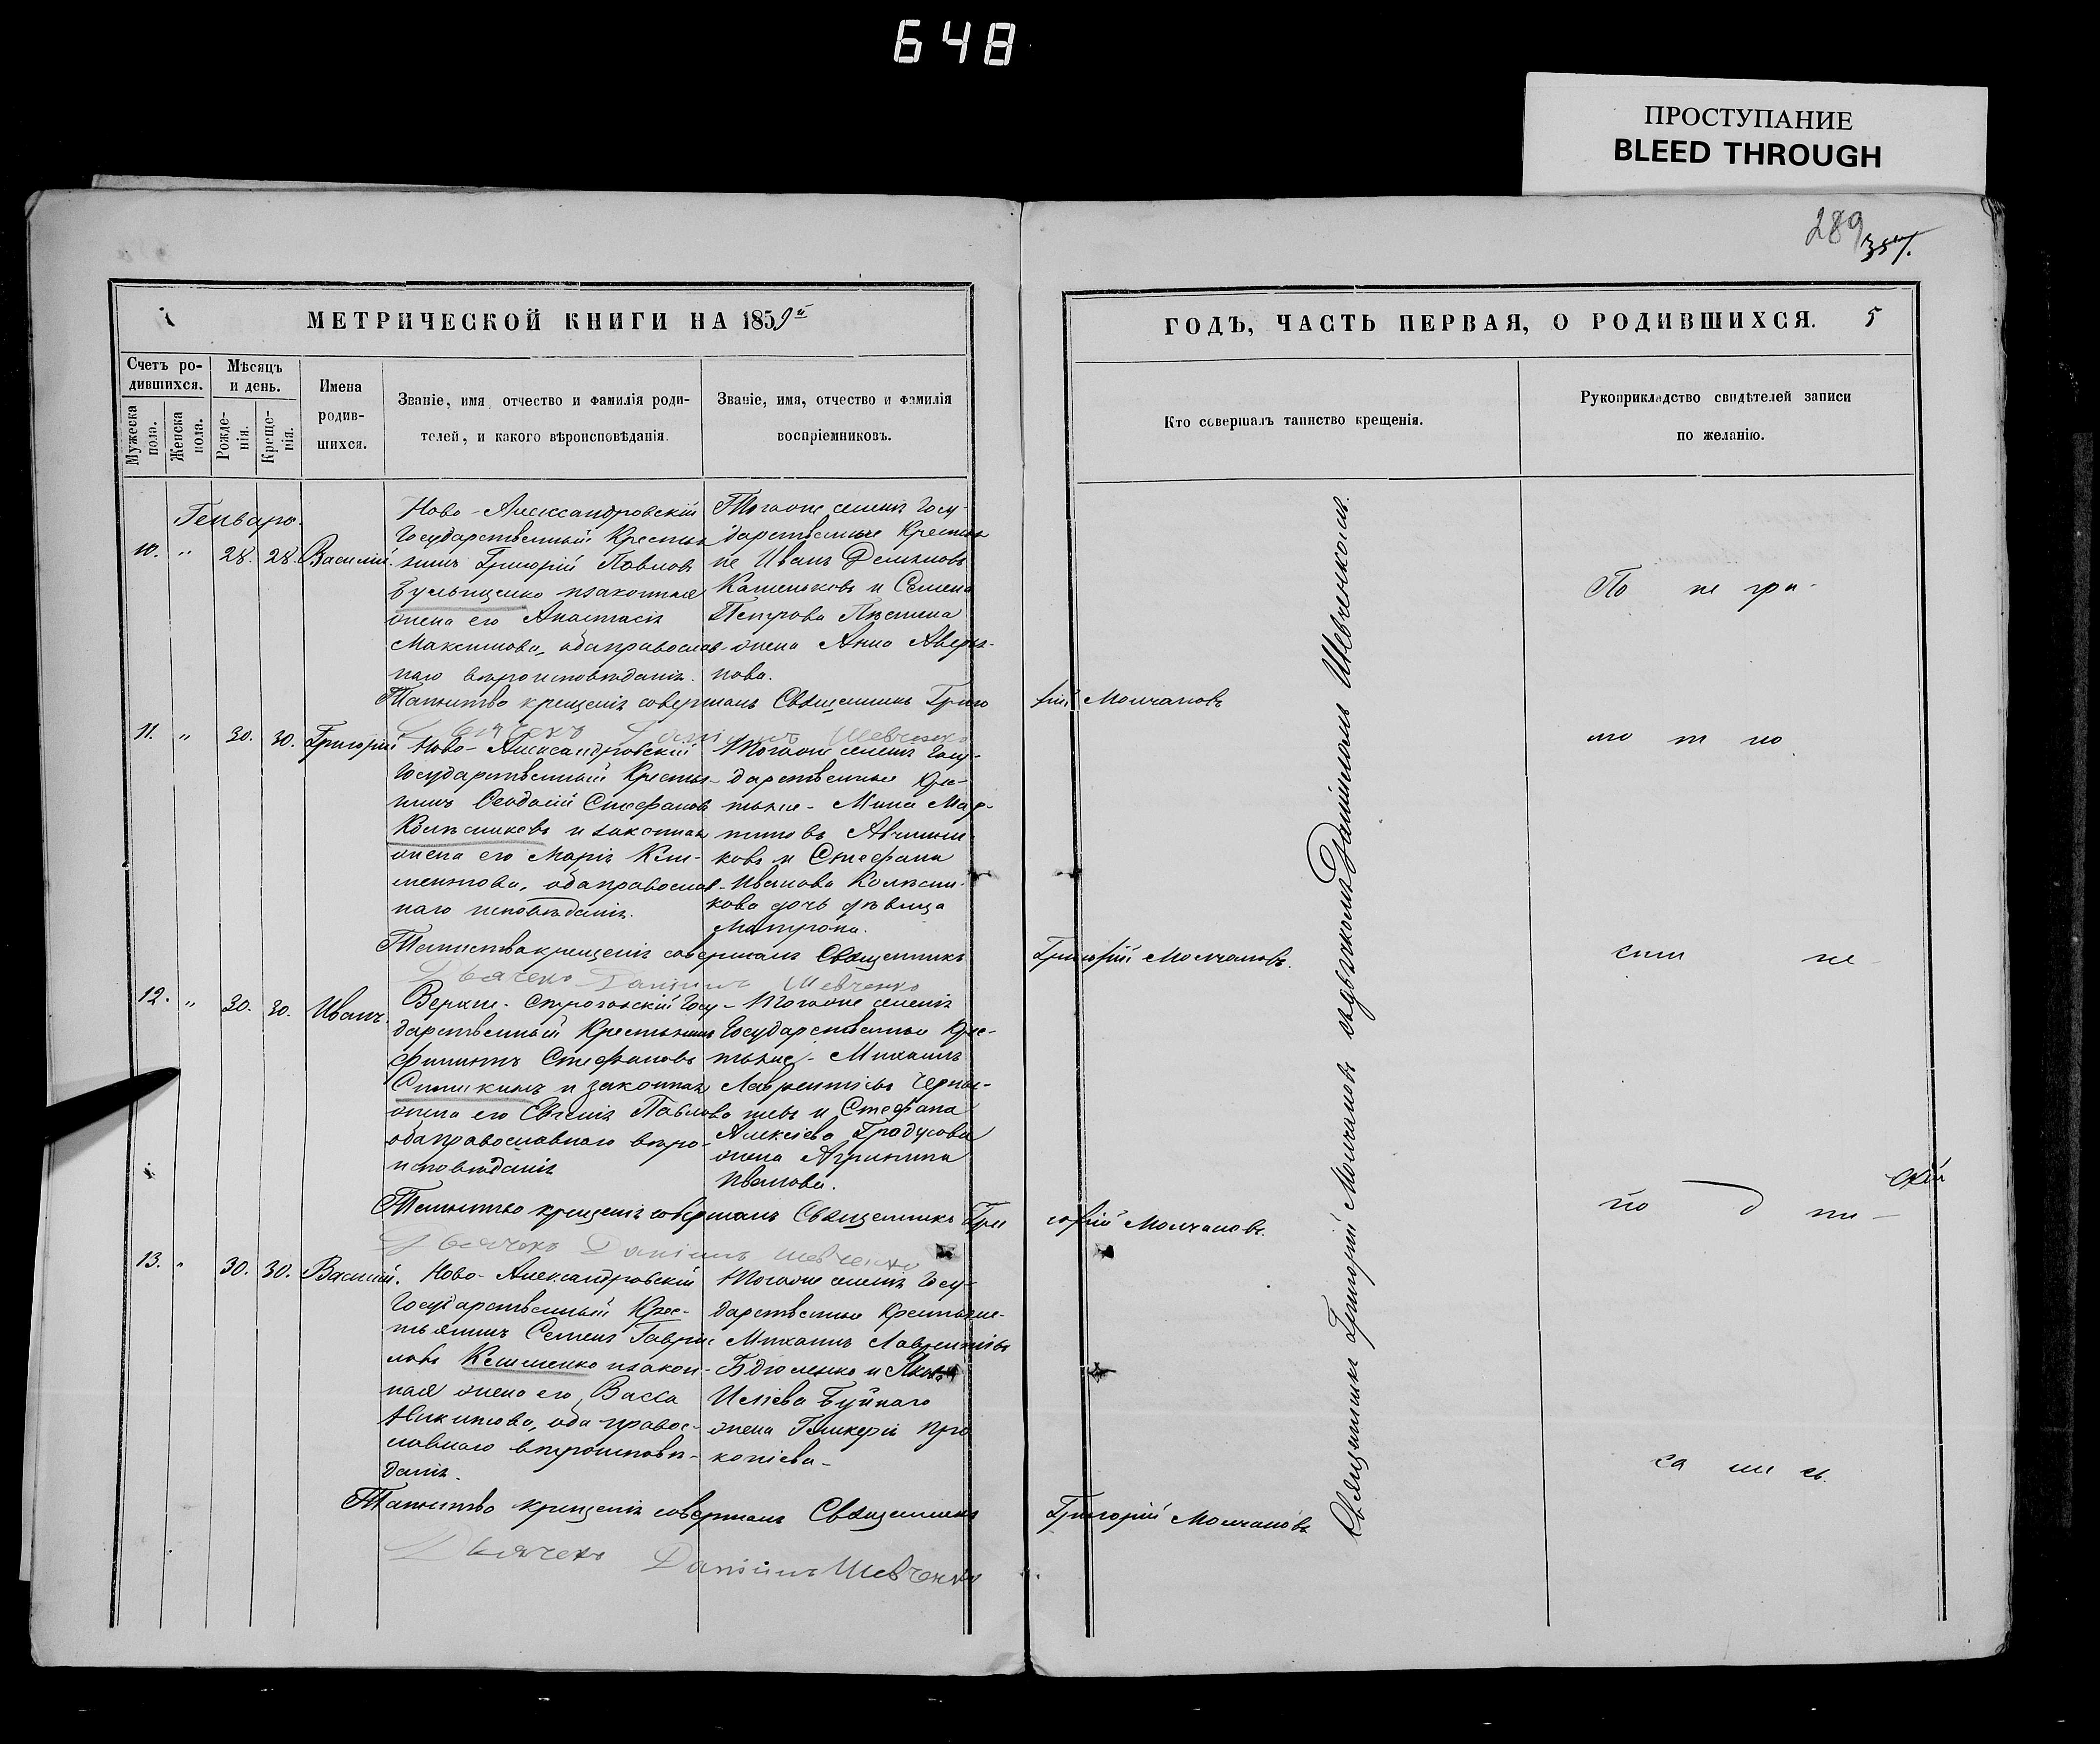 648
ПРОСТУПАНИЕ
BLEED THROUGH
289
МЕТРИЧЕСКОЙ КНИГИ НА 1859й
Счетъ ро-
дившихся.
Мужеска
пола.
Женска
пола.
Мѣсяцъ
и день.
Рожде-
нія.
Креще-
нія.
Имена
родив-
шихся.
Званіе, имя отчество и фамилія роди-
телей, и какого вѣроисповѣданія.
Званіе, имя, отчество и фамилія
воспріемниковъ.
Генваря
10. " 28. 28. Василій.
Ново-Александровскій
Государственный Крестья
нинъ Григорій Павловъ
изаконная
жена его Анастасія
Максимова, обаправослав-
наго вѣроисповѣданія.
Тогоже селенія Госу-
дарственные Крестья
не Иванъ Демьяновъ
и Семена
Петрова
жена Анна Аверья-
нова.
Таинство крещенія совершалъ Священникъ Григо
Дьячекъ Даніилъ Шевченко
11. " 30. 30. Григорій
Ново-Александровскій
Государственный Крестья-
нинъ Феодосій Стефановъ
Колѣсниковъ и законная
жена его Марія Кли-
ментова, обаправослав-
наго исповѣданія.
Тогоже селенія Госу-
дарственные Кре-
стьяне- Мина Мар-
тиновъ
ковъ и Стефана
Иванова Колѣсни-
кова дочь дѣвица
Матрона.
Таинствакрещенія совершалъ Священникъ
Дьячекъ Даніилъ Шевченко
12. " 30. 30. Иванъ.
Верхне-Строгановскій Госу-
дарственный Крестьянинъ
Филиппъ Стефановъ
и законная
жена его Евгенія Павлова
обаправославнаго вѣро-
исповѣданія
Тогоже селенія
Государственные Кре-
стьяне- Михаилъ
Лаврентіевъ Черны-
шевъ и Стефана
Алексіева Градусова
жена Агрипина
Иванова.
Таинство крещенія совершалъ Священникъ Гри
Дьячекъ Даніилъ Шевченко
13. " 30. 30. Василій.
Ново-Александровскій
Государственный Крес-
тьянинъ Семенъ Гаври
ловъ Клименко изакон-
ная жена его, Васса
Никитова, оба правос-
лавнаго вѣроисповѣ-
данія.
Тогоже селенія Госу-
дарственные Крестьяне-
Михаилъ Лаврентіевъ
и Якова
Иліева Буйнаго
жена Гликерія Про
копіева-
Таинство крещенія совершалъ Священникъ
Дьячекъ Даніилъ Шевченко
ГОДЪ, ЧАСТЬ ПЕРВАЯ, О РОДИВШИХСЯ. 5
Кто совершалъ таинство крещенія.
Рукоприкладство свидѣтелей записи
по желанію.
рій Молчановъ
Григорій Молчановъ.
горій Молчановъ.
Григорій Молчановъ
Священникъ Григорій Молчановъ съдьячкомъ Данииломъ Шевченкомъ.
По не гра-
мо т но
сти не
по д пи-
са ли сь.